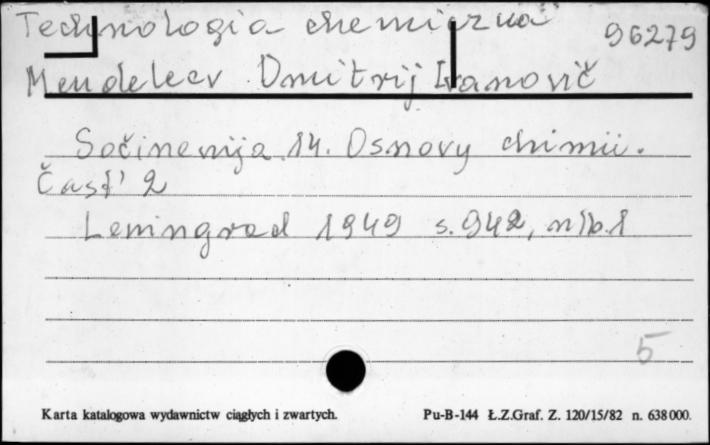 Technologia chemiczna 96279
Mendeleev Dmitrij Ivanovič
Sočinenija 14. Osnovy chimii.
Čast' 2
Leningrad 1949 s. 942, nlb. 1
5
Karta katalogowa wydawnictw ciągłych i zwartych. Pu-B-144 Ł.Z.Graf. Z. 120/15/82 n. 638 000.